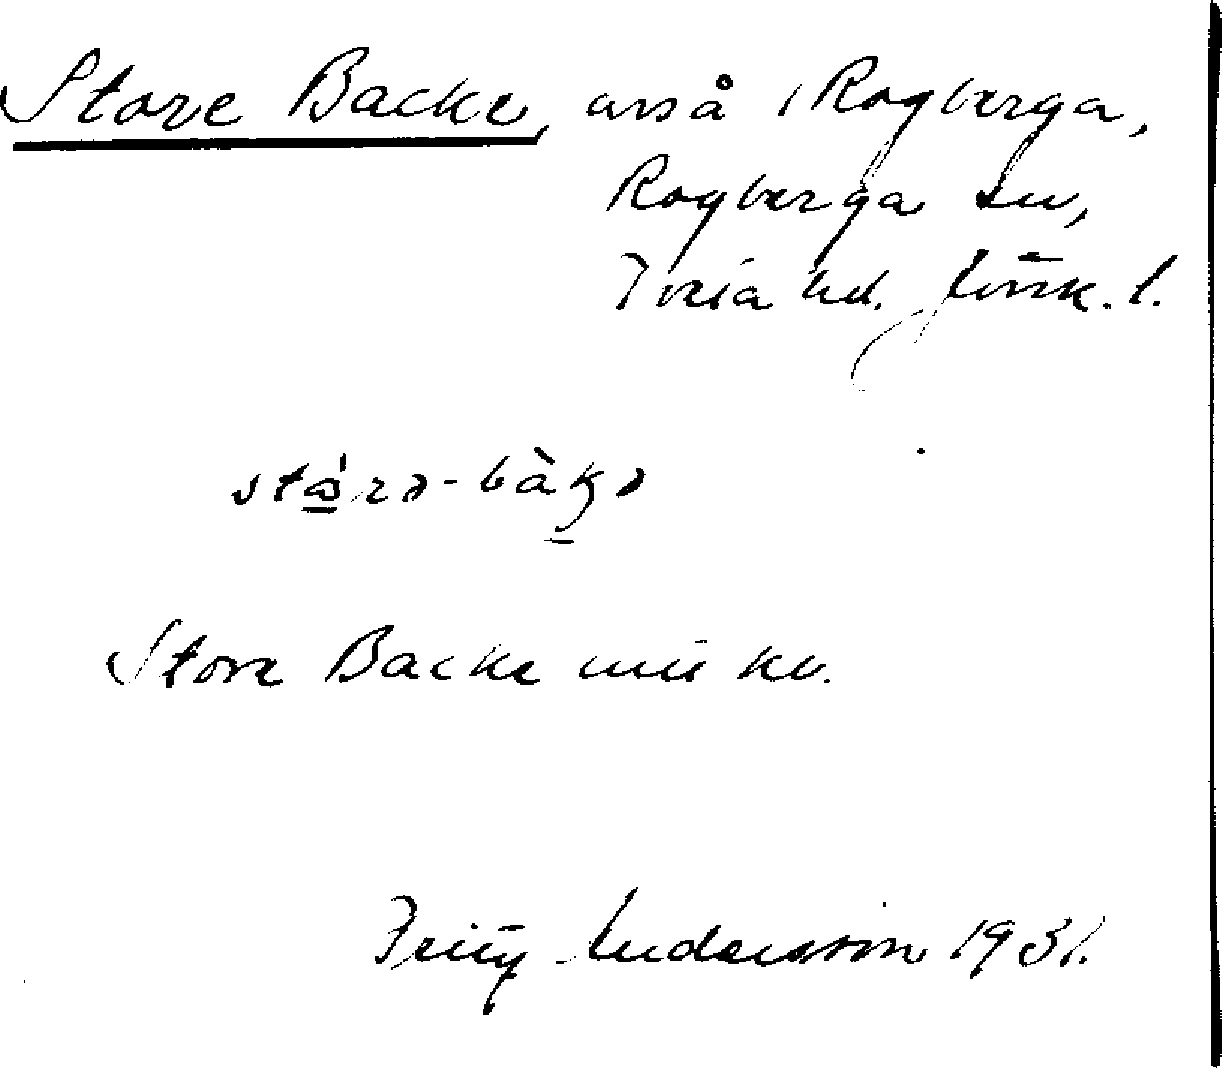 Store Backe, avså i Rogberga,
Rogberga sn,
Tveta hd. Jönk. l.
Store Backe
Fritz Andersson 1931.